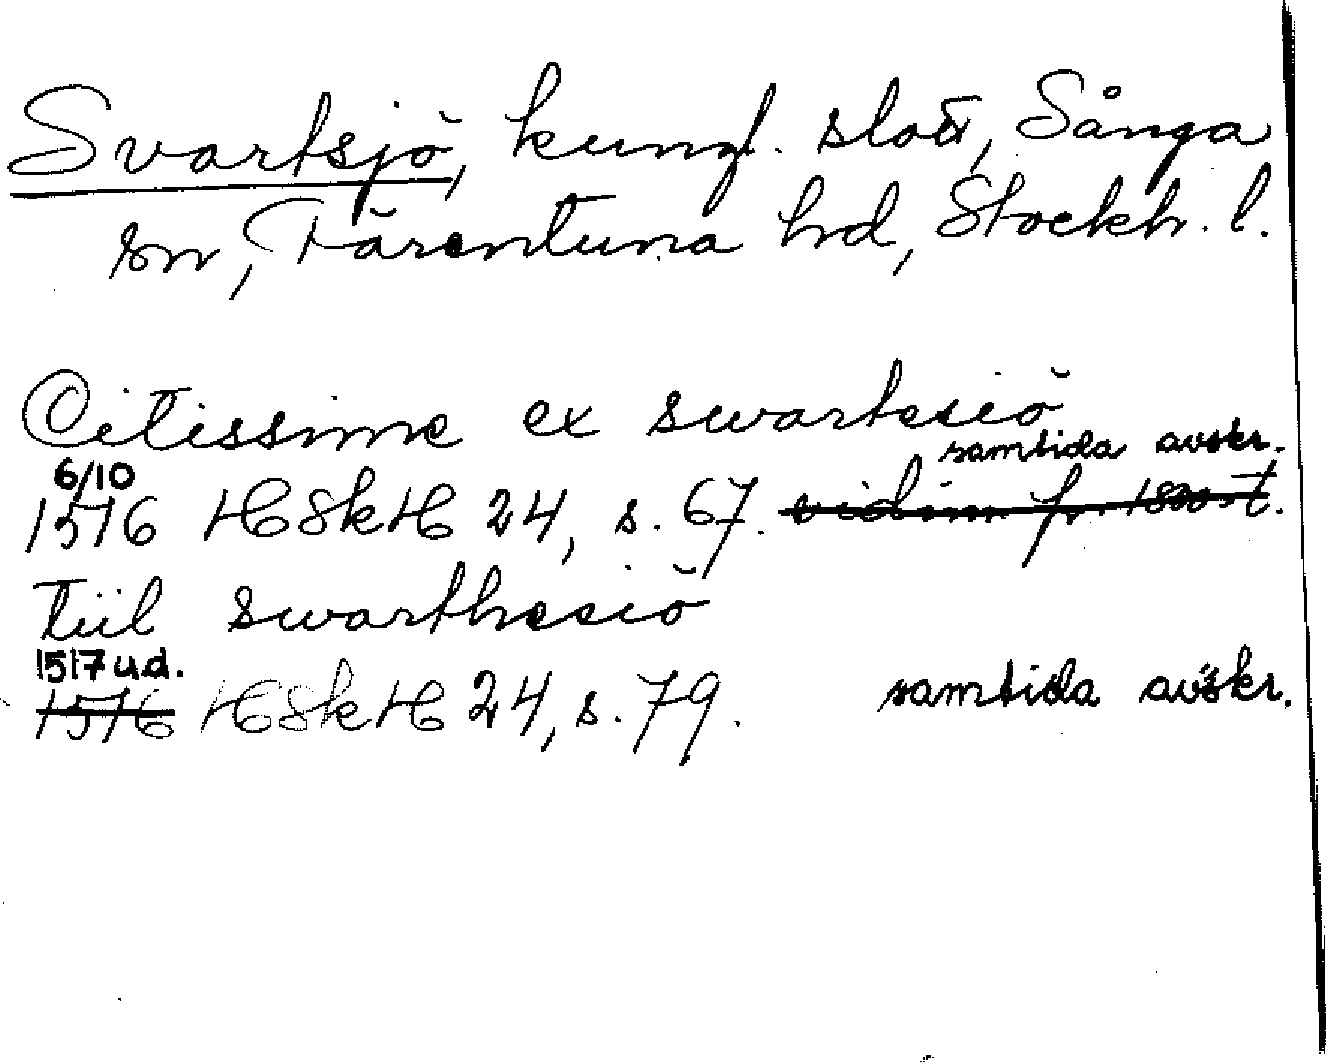 Svartsjö, kungl. slott, Sånga
sn, Färentuna hd, Stockh. l.
Citissime ex swartesiö
samtida avskr.
6/10
1516 HSkH 24, s. 67. vidim fr. 1800-t.
tiil swarthesiö
1517 u.d.
1516 HSkH 24, s. 79. samtida avskr.